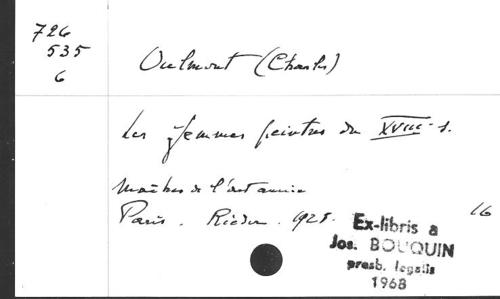 726
535
6
Oulmont (Charles)
Les femmes peintres du XVIIIe s.
Maîtres de l'art ancien
Paris. Rieder. 1928.
16
Ex-libris a
Jos. BOUQUIN
presb. legalis
1968